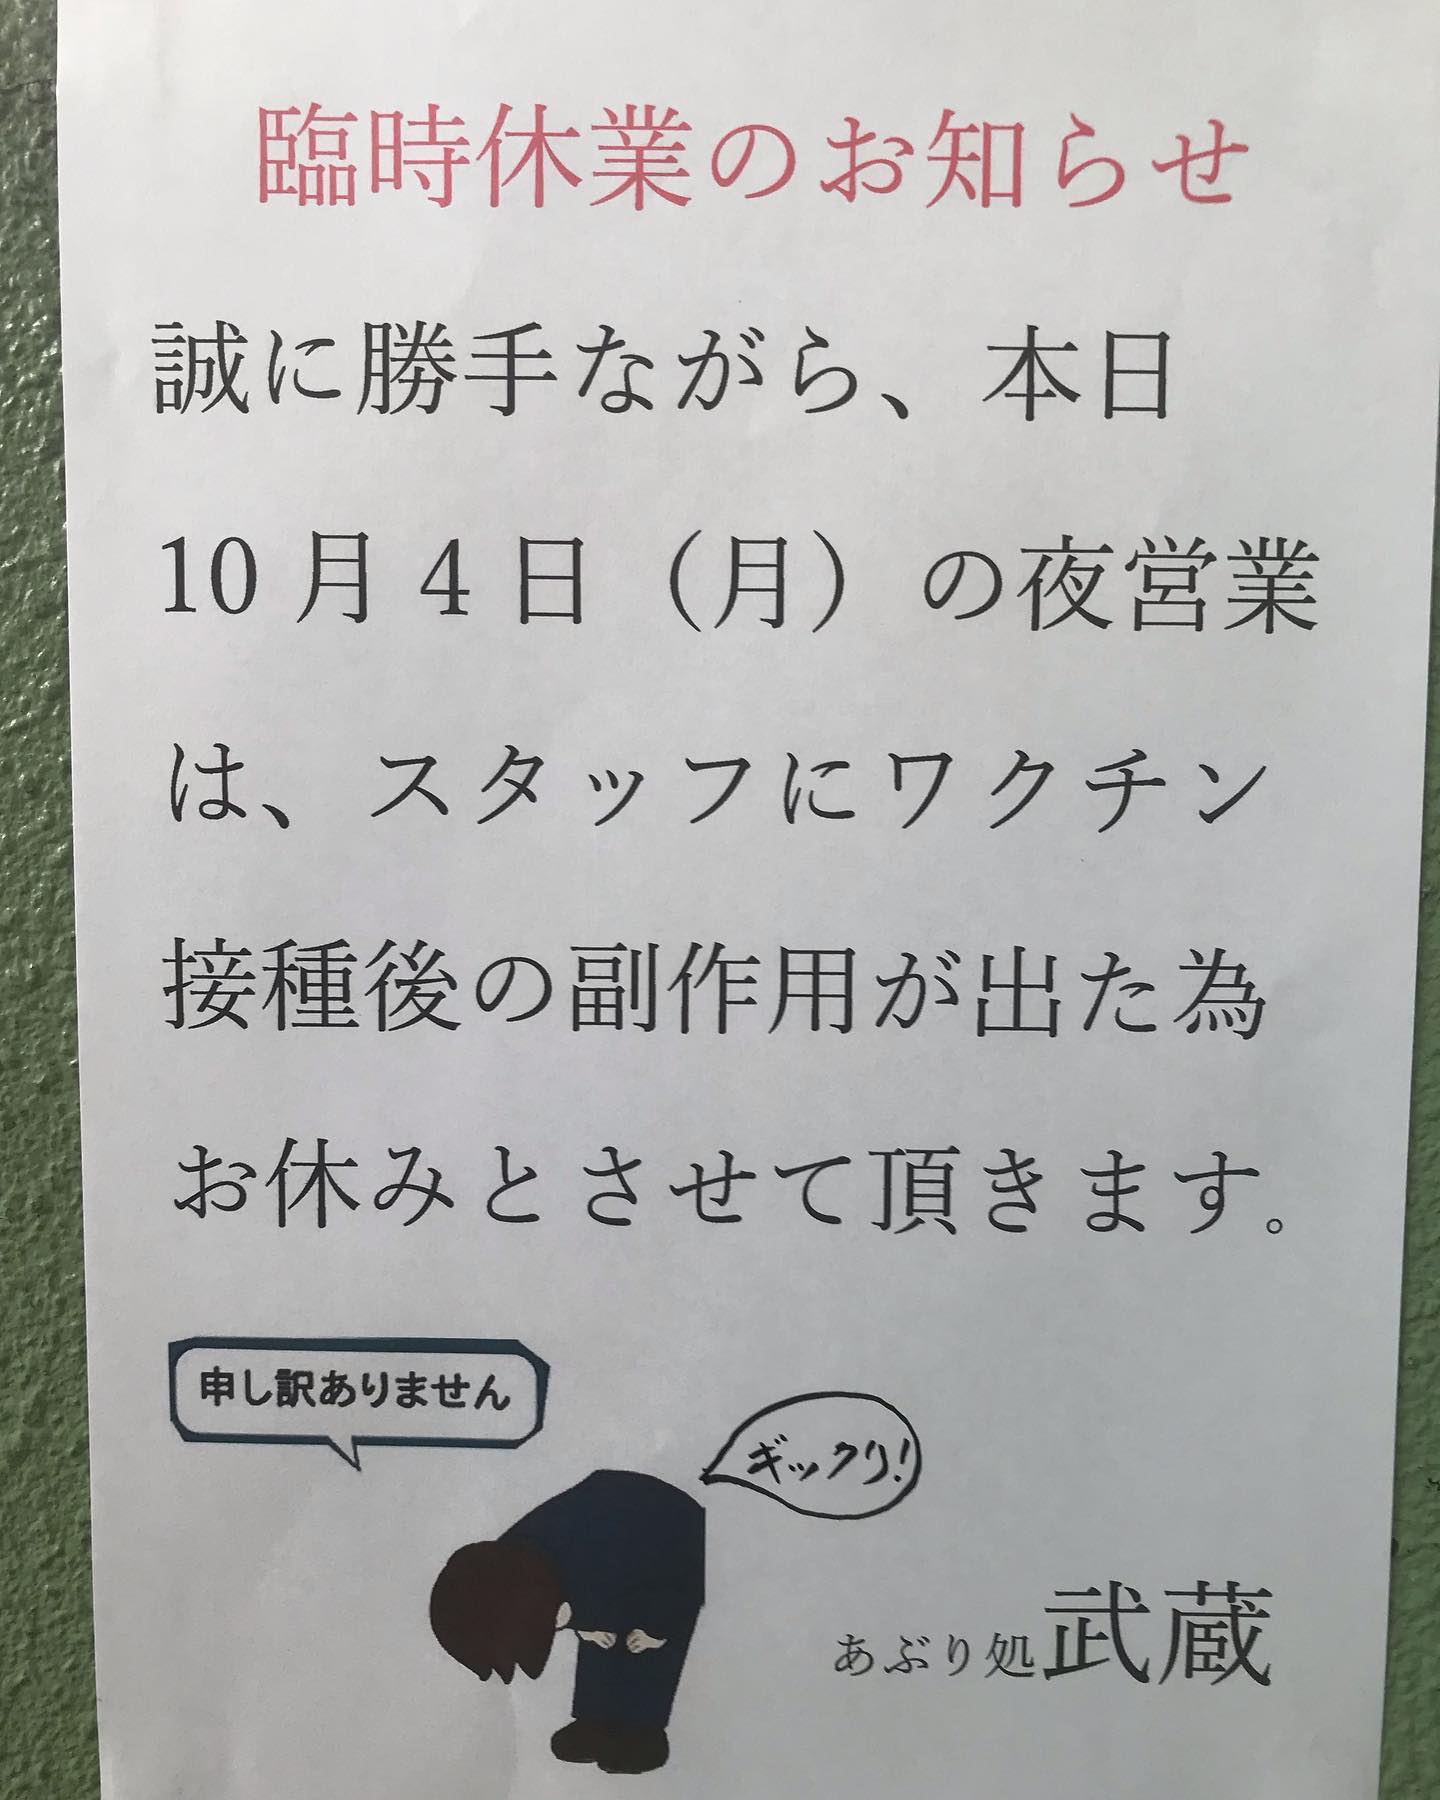 臨時休業のお知らせ
誠に勝手ながら、本日
10月4日（月）の夜営業
は、スタッフにワクチン
接種後の副作用が出た為
お休みとさせて頂きます。
申し訳ありません
ギックリ！
あぶり処武蔵